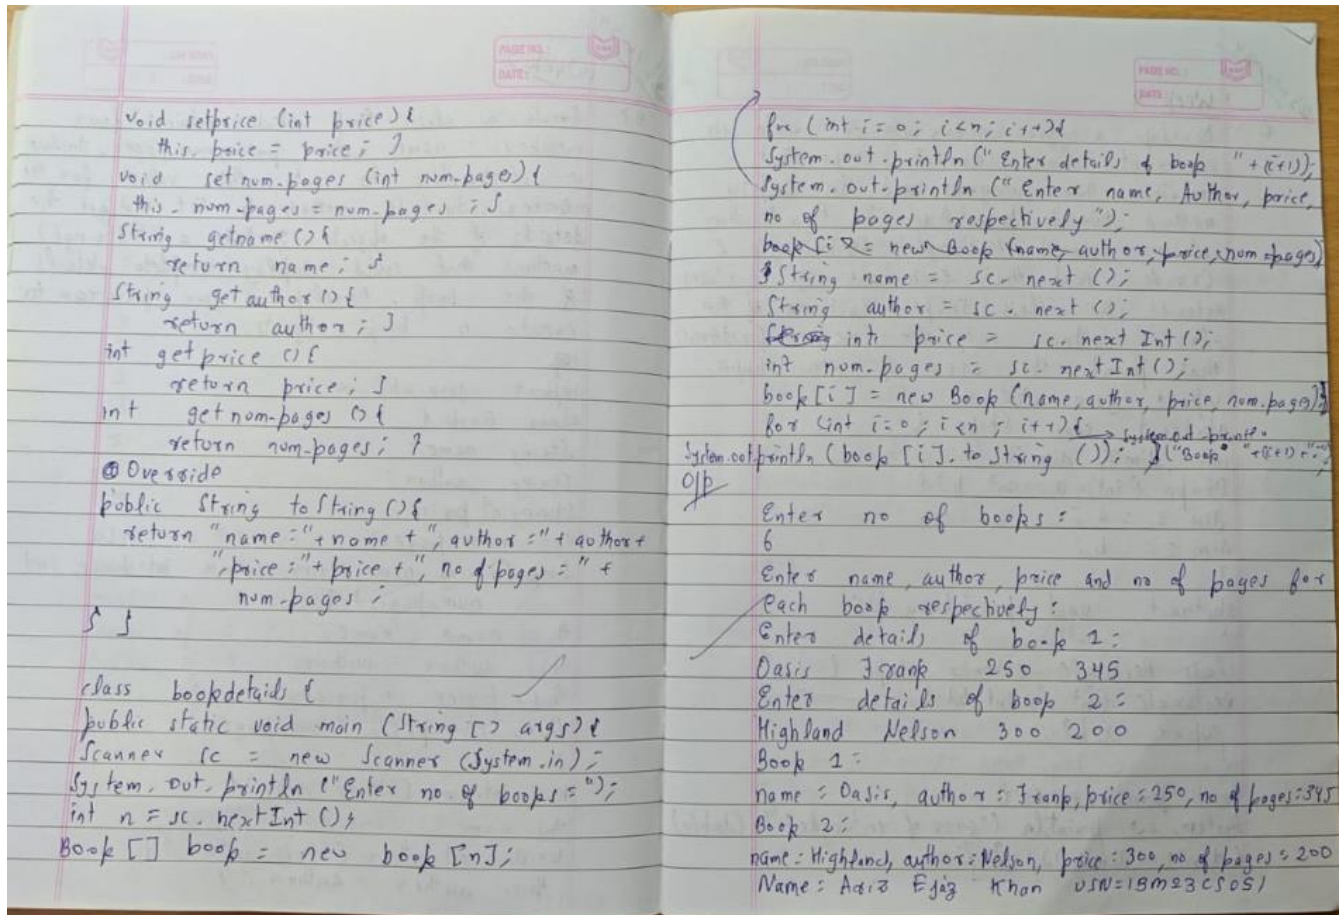 PAGE NO.:
DATE:
void setprice (int price) {
this. price = price; }
void set num-pages (int num-pages) {
this. num-pages = num-pages; }
String getname () {
return name; }
String getauthor () {
return author; }
int getprice () {
return price; }
int getnum-pages () {
return num-pages; }
@Override
public String toString () {
return "name:" + name + ", author:" + author +
", price:" + price + ", no of pages:" +
num-pages;
} }
class bookdetails {
public static void main (String [] args) {
Scanner sc = new Scanner (System.in);
System.out.println ("Enter no. of books:");
int n = sc. nextInt ();
Book [] book = new book [n];
PAGE NO.:
DATE:
for (int i=0; i<n; i++) {
System.out.println ("Enter details of book " + (i+1));
System.out.println ("Enter name, Author, price,
no of pages respectively");
book [i] = new Book (name, author, price, num-pages)
} String name = sc. next ();
String author = sc. next ();
String int price = sc. next Int ();
int num-pages = sc. nextInt ();
book [i] = new Book (name, author, price, num-pages); }
for (int i=0; i<n; i++) { → System.out.println
System.out.println (book [i]. to String ()); } ("Book" + (i+1) + ":");
O/p
Enter no of books:
6
Enter name, author, price and no of pages for
each book respectively:
Enter details of book 1:
Oasis Frank 250 345
Enter details of book 2:
Highland Nelson 300 200
Book 1:
name: Oasis, author: Frank, price: 250, no of pages: 345
Book 2:
name: Highland, author: Nelson, price: 300, no of pages: 200
Name: Ariz Ejaz Khan USN=1BM23CS051